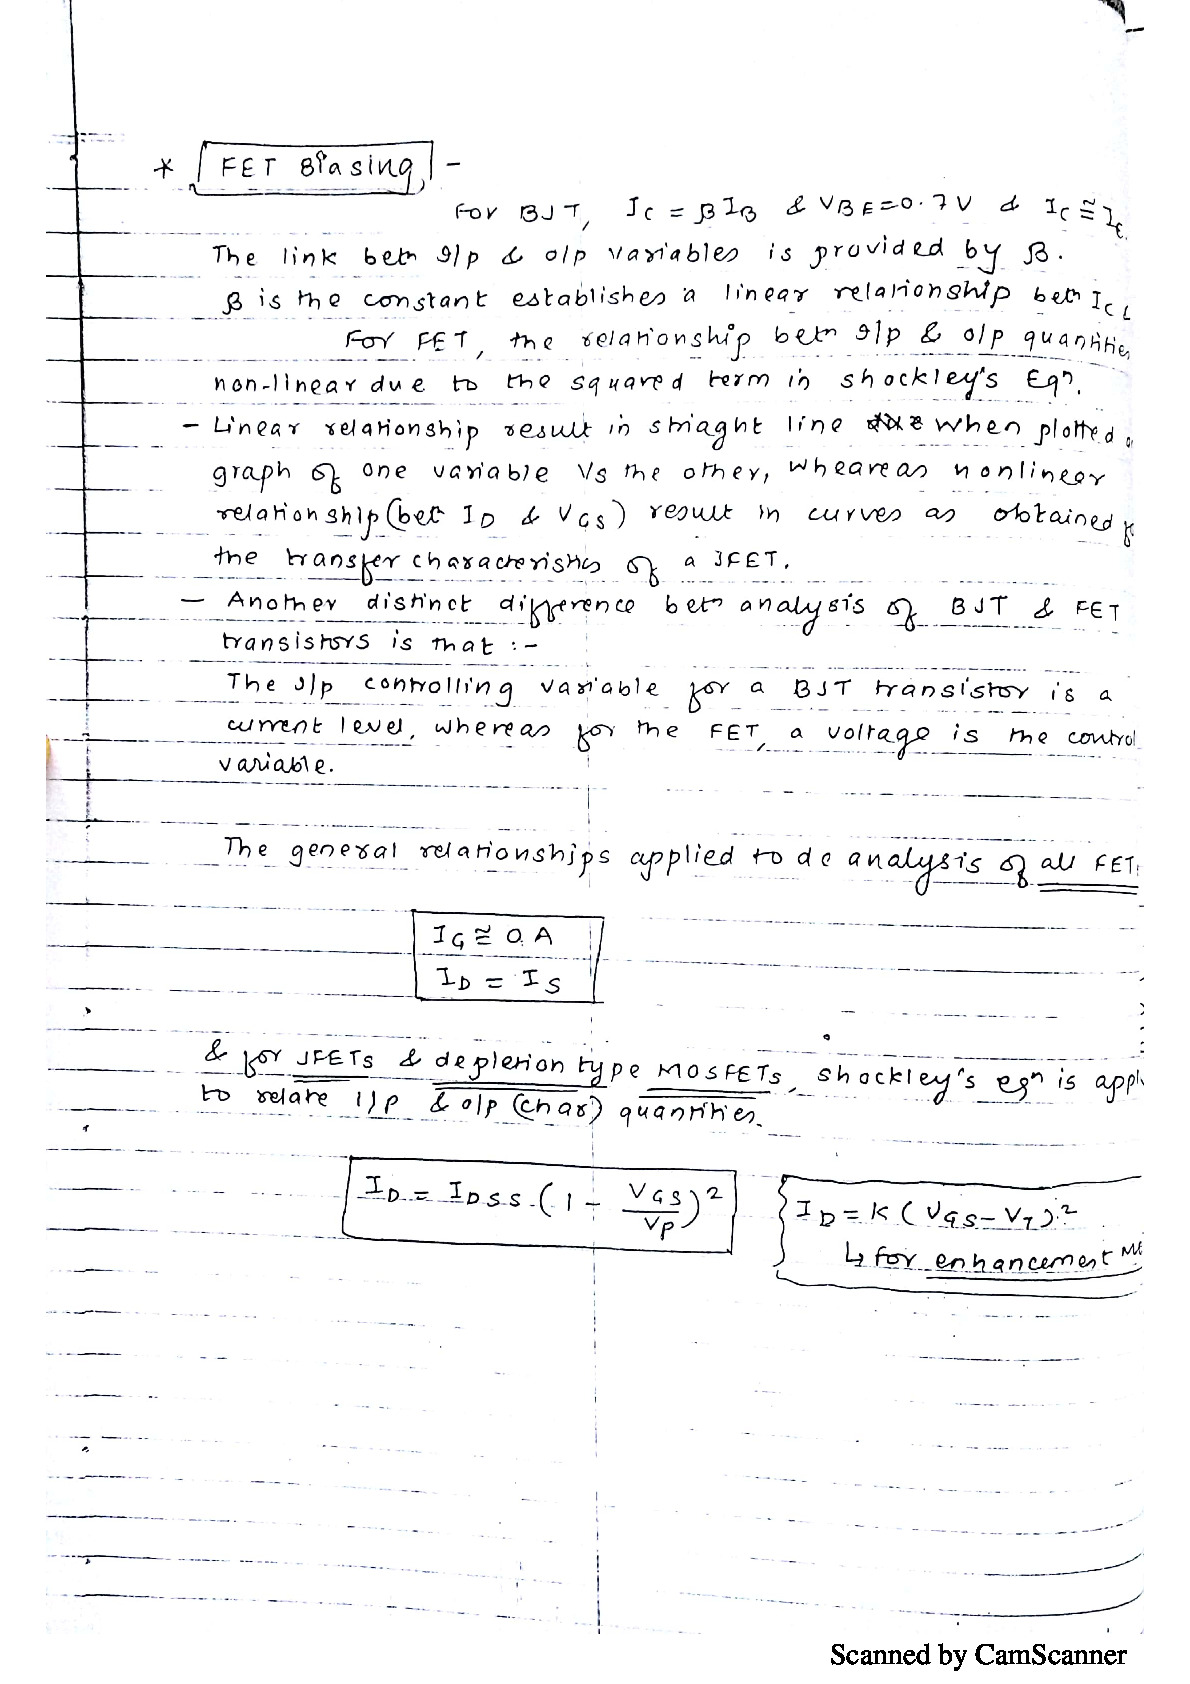 * FET Biasing -
For BJT, IC = βIB & VBE=0.7V & IC ≅ IE
The link betn I/p & o/p variables is provided by β.
β is the constant establishes a linear relationship betn IC
For FET, the relationship betn I/p & o/p quantities
non-linear due to the squared term in shockley's Eqn.
- Linear relationship result in striaght line when plotted
graph of one variable Vs the other, wheareas nonlinear
relationship (bet ID & VGS) result in curves as obtained
the transfer characteristics of a JFET.
- Another distinct difference betn analysis of BJT & FET
transistors is that :-
The I/p controlling variable for a BJT transistor is a
current level, whereas for the FET, a voltage is the control
variable.
The general relationships applied to dc analysis of all FET
IG ≅ 0 A
ID = IS
& for JFETs & depletion type MOSFETs, shockley's eqn is appl
to relate i/p & o/p (char) quantities.
ID = IDSS (1 - VGS/VP)²
ID = K (VGS - VT)²
↳ for enhancement
Scanned by CamScanner